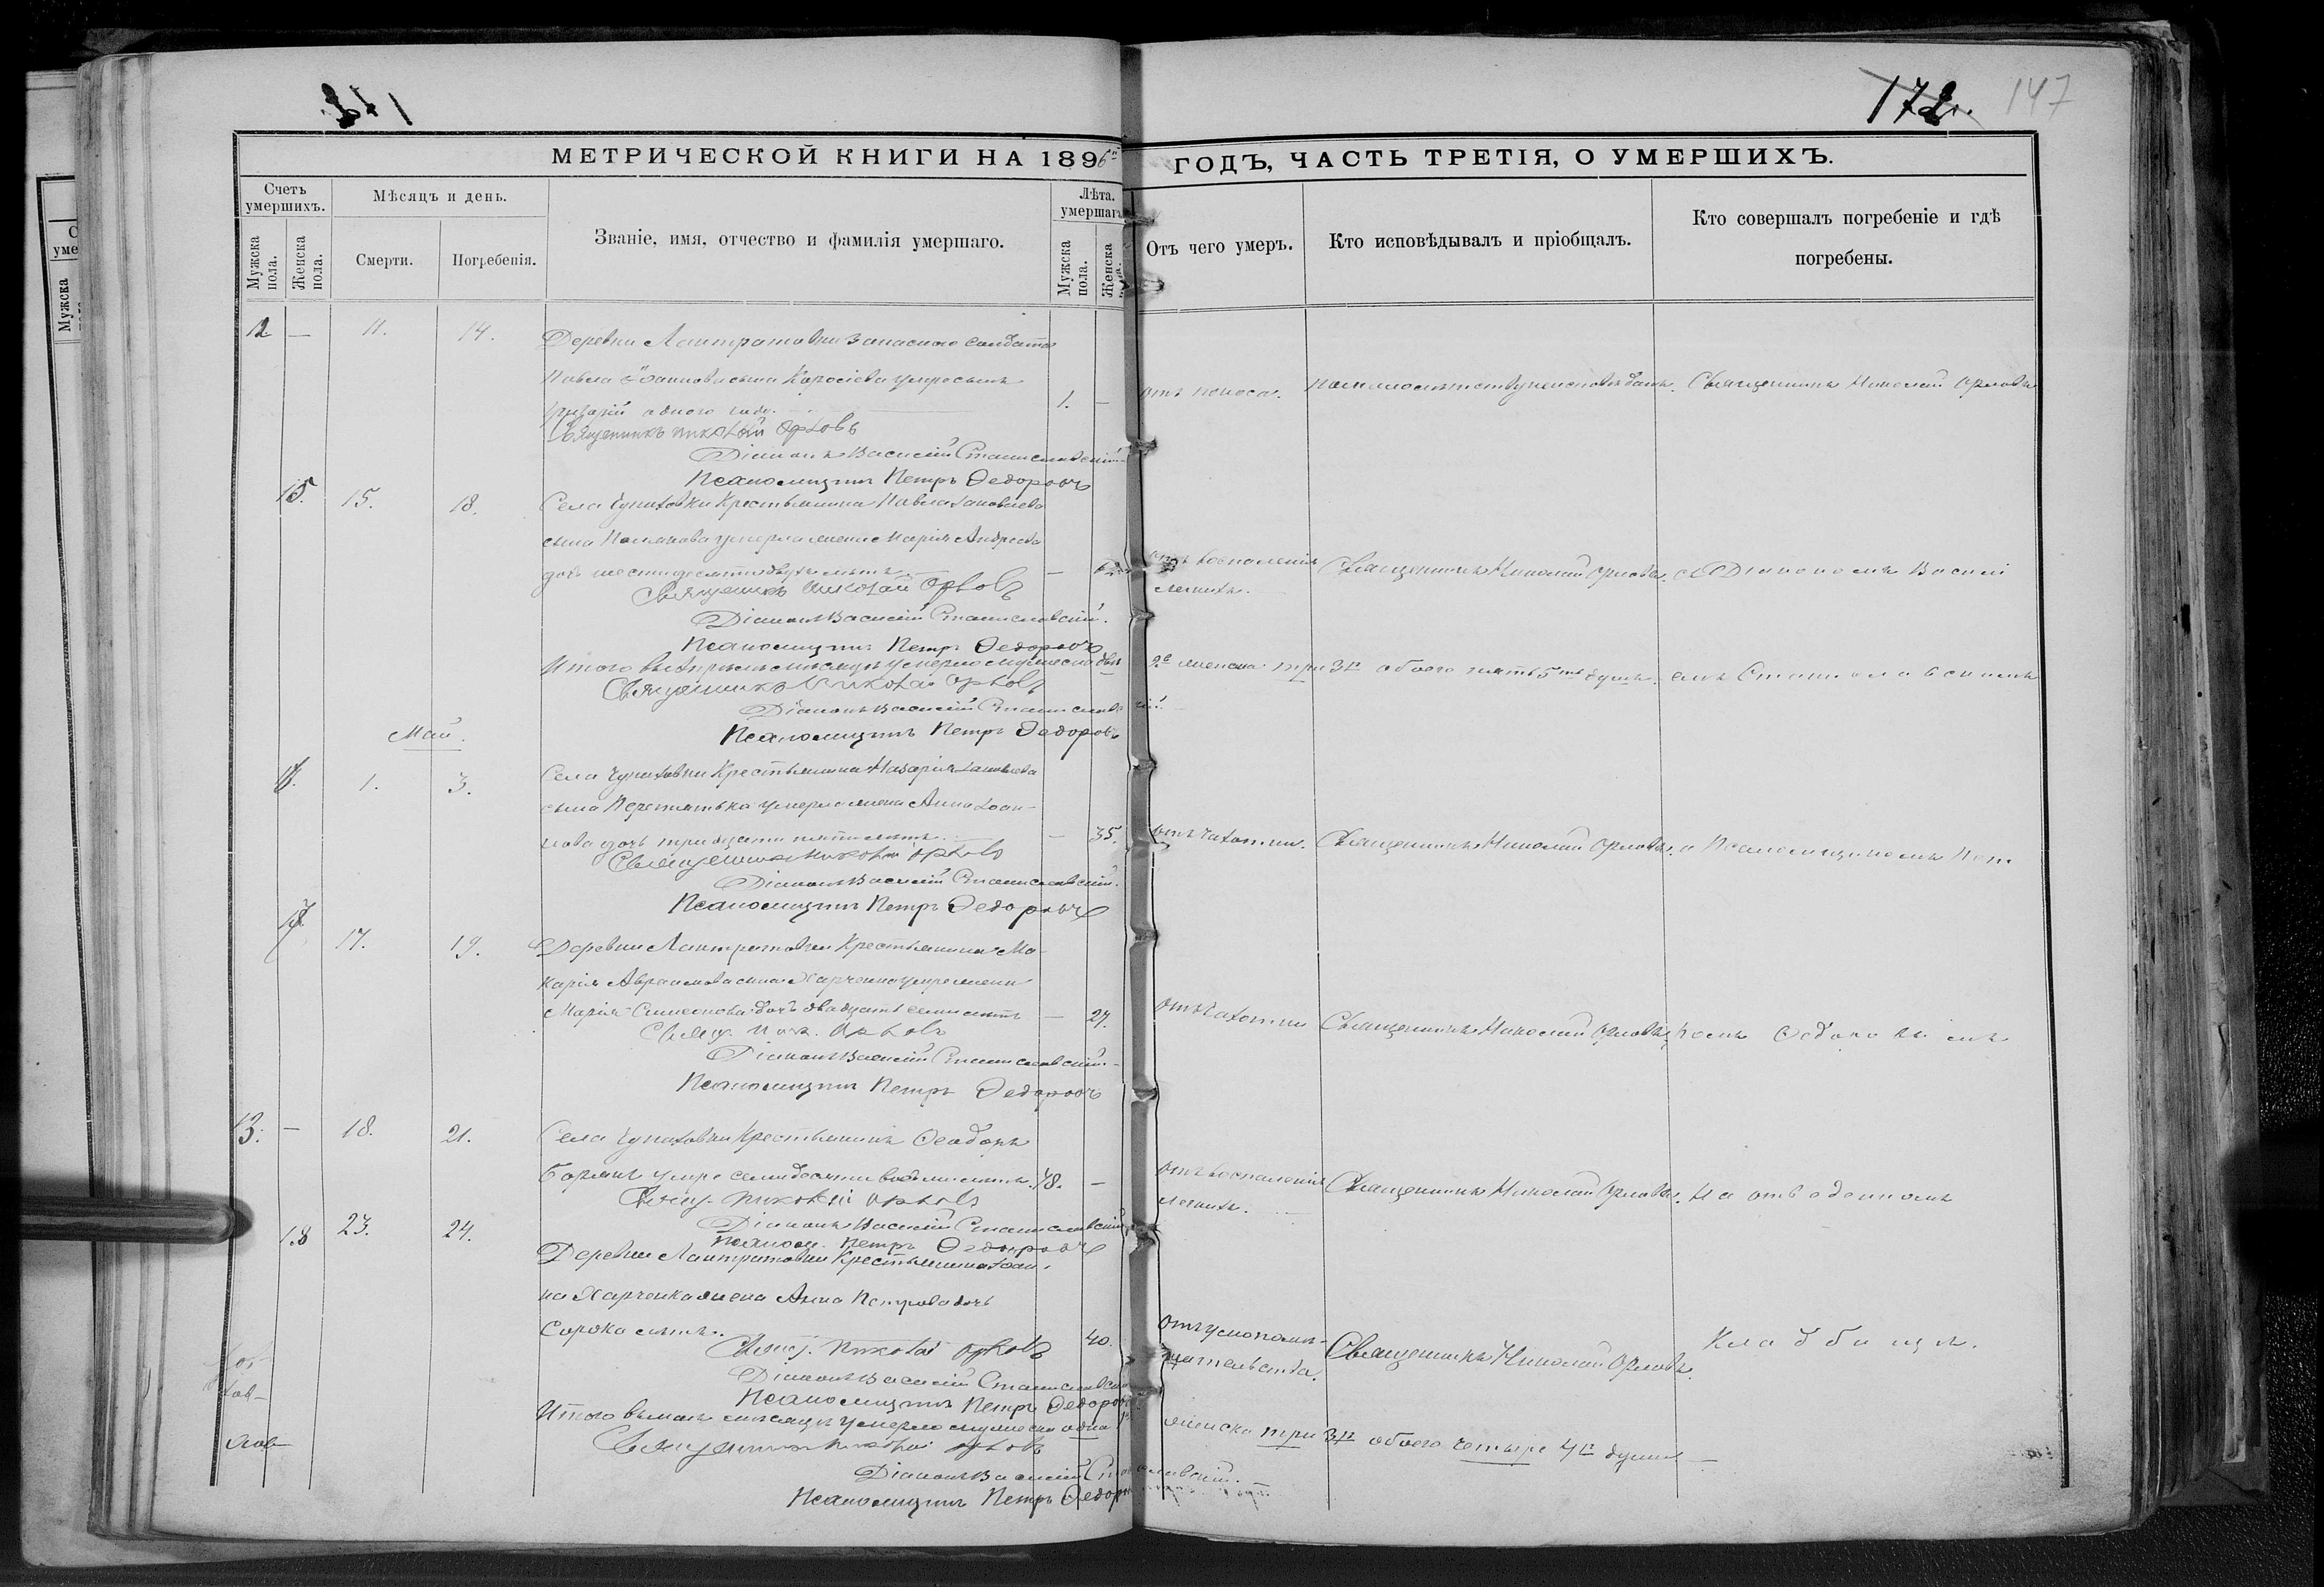 172. 147
МЕТРИЧЕСКОЙ КНИГИ НА 1896й ГОДЪ, ЧАСТЬ ТРЕТІЯ, О УМЕРШИХЪ.
Счетъ умершихъ.
Мужска пола.
Женска пола.
Мѣсяцъ и день.
Смерти.
Погребенія.
Званіе, имя, отчество и фамилія умершаго.
Лѣта. умершаго
Мужска пола.
Женска
Отъ чего умеръ.
Кто исповѣдывалъ и пріобщалъ.
Кто совершалъ погребеніе и гдѣ погребены.
12 — 11. 14. Деревни запаснаго солдата
Павла Іоаннова сына умре сынъ
Григорій одного года. 1. — отъ поноса. Священникъ Николай Орловъ
Священникъ Николай Орловъ
Діаконъ Василій Станиславскій
Псаломщикъ Петръ Ѳедоровъ
15. 15. 18. Села Чупаховки Крестьянина Павла
сына умерла жена Марія Андреева
дочь шестидесяти двухъ лѣтъ — отъ воспаленія легкихъ. Священникъ Николай Орловъ. съ Діакономъ Василі
Священникъ Николай Орловъ
Діаконъ Василій Станиславскій.
Псаломщикъ Петръ Ѳедоровъ
Итого въ Апрѣлѣ мѣсяцѣ умерло мужеска два 2а женска три 3и обоего пять 5ть душъ. емъ Станиславскимъ
Священникъ Николай Орловъ
Діаконъ Василій Станиславскій.
Псаломщикъ Петръ Ѳедоровъ
Май.
16. 1. 3. Села Чупаховки Крестьянина Назарія
сына Перетятька умерла жена Анна Іоан-
нова дочь тридцати пяти лѣтъ — 35. отъ чахотки. Священникъ Николай Орловъ. и Псаломщикомъ Пет
Священникъ Николай Орловъ
Діаконъ Василій Станиславскій.
Псаломщикъ Петръ Ѳедоровъ
17. 17. 19. Деревни Крестьянина Ма-
карія сына Харченко умре жена
Марія Симеонова дочь двадцати семи лѣтъ — 27. отъ чахотки Священникъ Николай Орловъ ромъ Ѳедоровымъ
Свящ. Ник. Орловъ
Діаконъ Василій Станиславскій.
Псаломщикъ Петръ Ѳедоровъ
13. — 18. 21. Села Чупаховки Крестьянинъ Ѳеодоръ
умре семидесяти восьми лѣтъ. 78. — отъ воспаленія легкихъ. Священникъ Николай Орловъ. На отведенномъ
Свящ. Николай Орловъ
Діаконъ Василій Станиславскій
Псалом. Петръ Ѳедоровъ
18 23. 24. Деревни Крестьянина Іоан-
на Харченка жена Анна Петрова дочь
сорока лѣтъ. 40. Священникъ Николай Орловъ. Кладбищѣ.
Свящ. Николай Орловъ
Діаконъ Василій Станиславскій
Псаломщикъ Петръ Ѳедоровъ
Итого въ маѣ мѣсяцѣ умерло мужеска одна женска три 3и обоего четыре 4и души —
Священникъ Николай Орловъ
Діаконъ Василій Станиславскій.
Псаломщикъ Петръ Ѳедоровъ